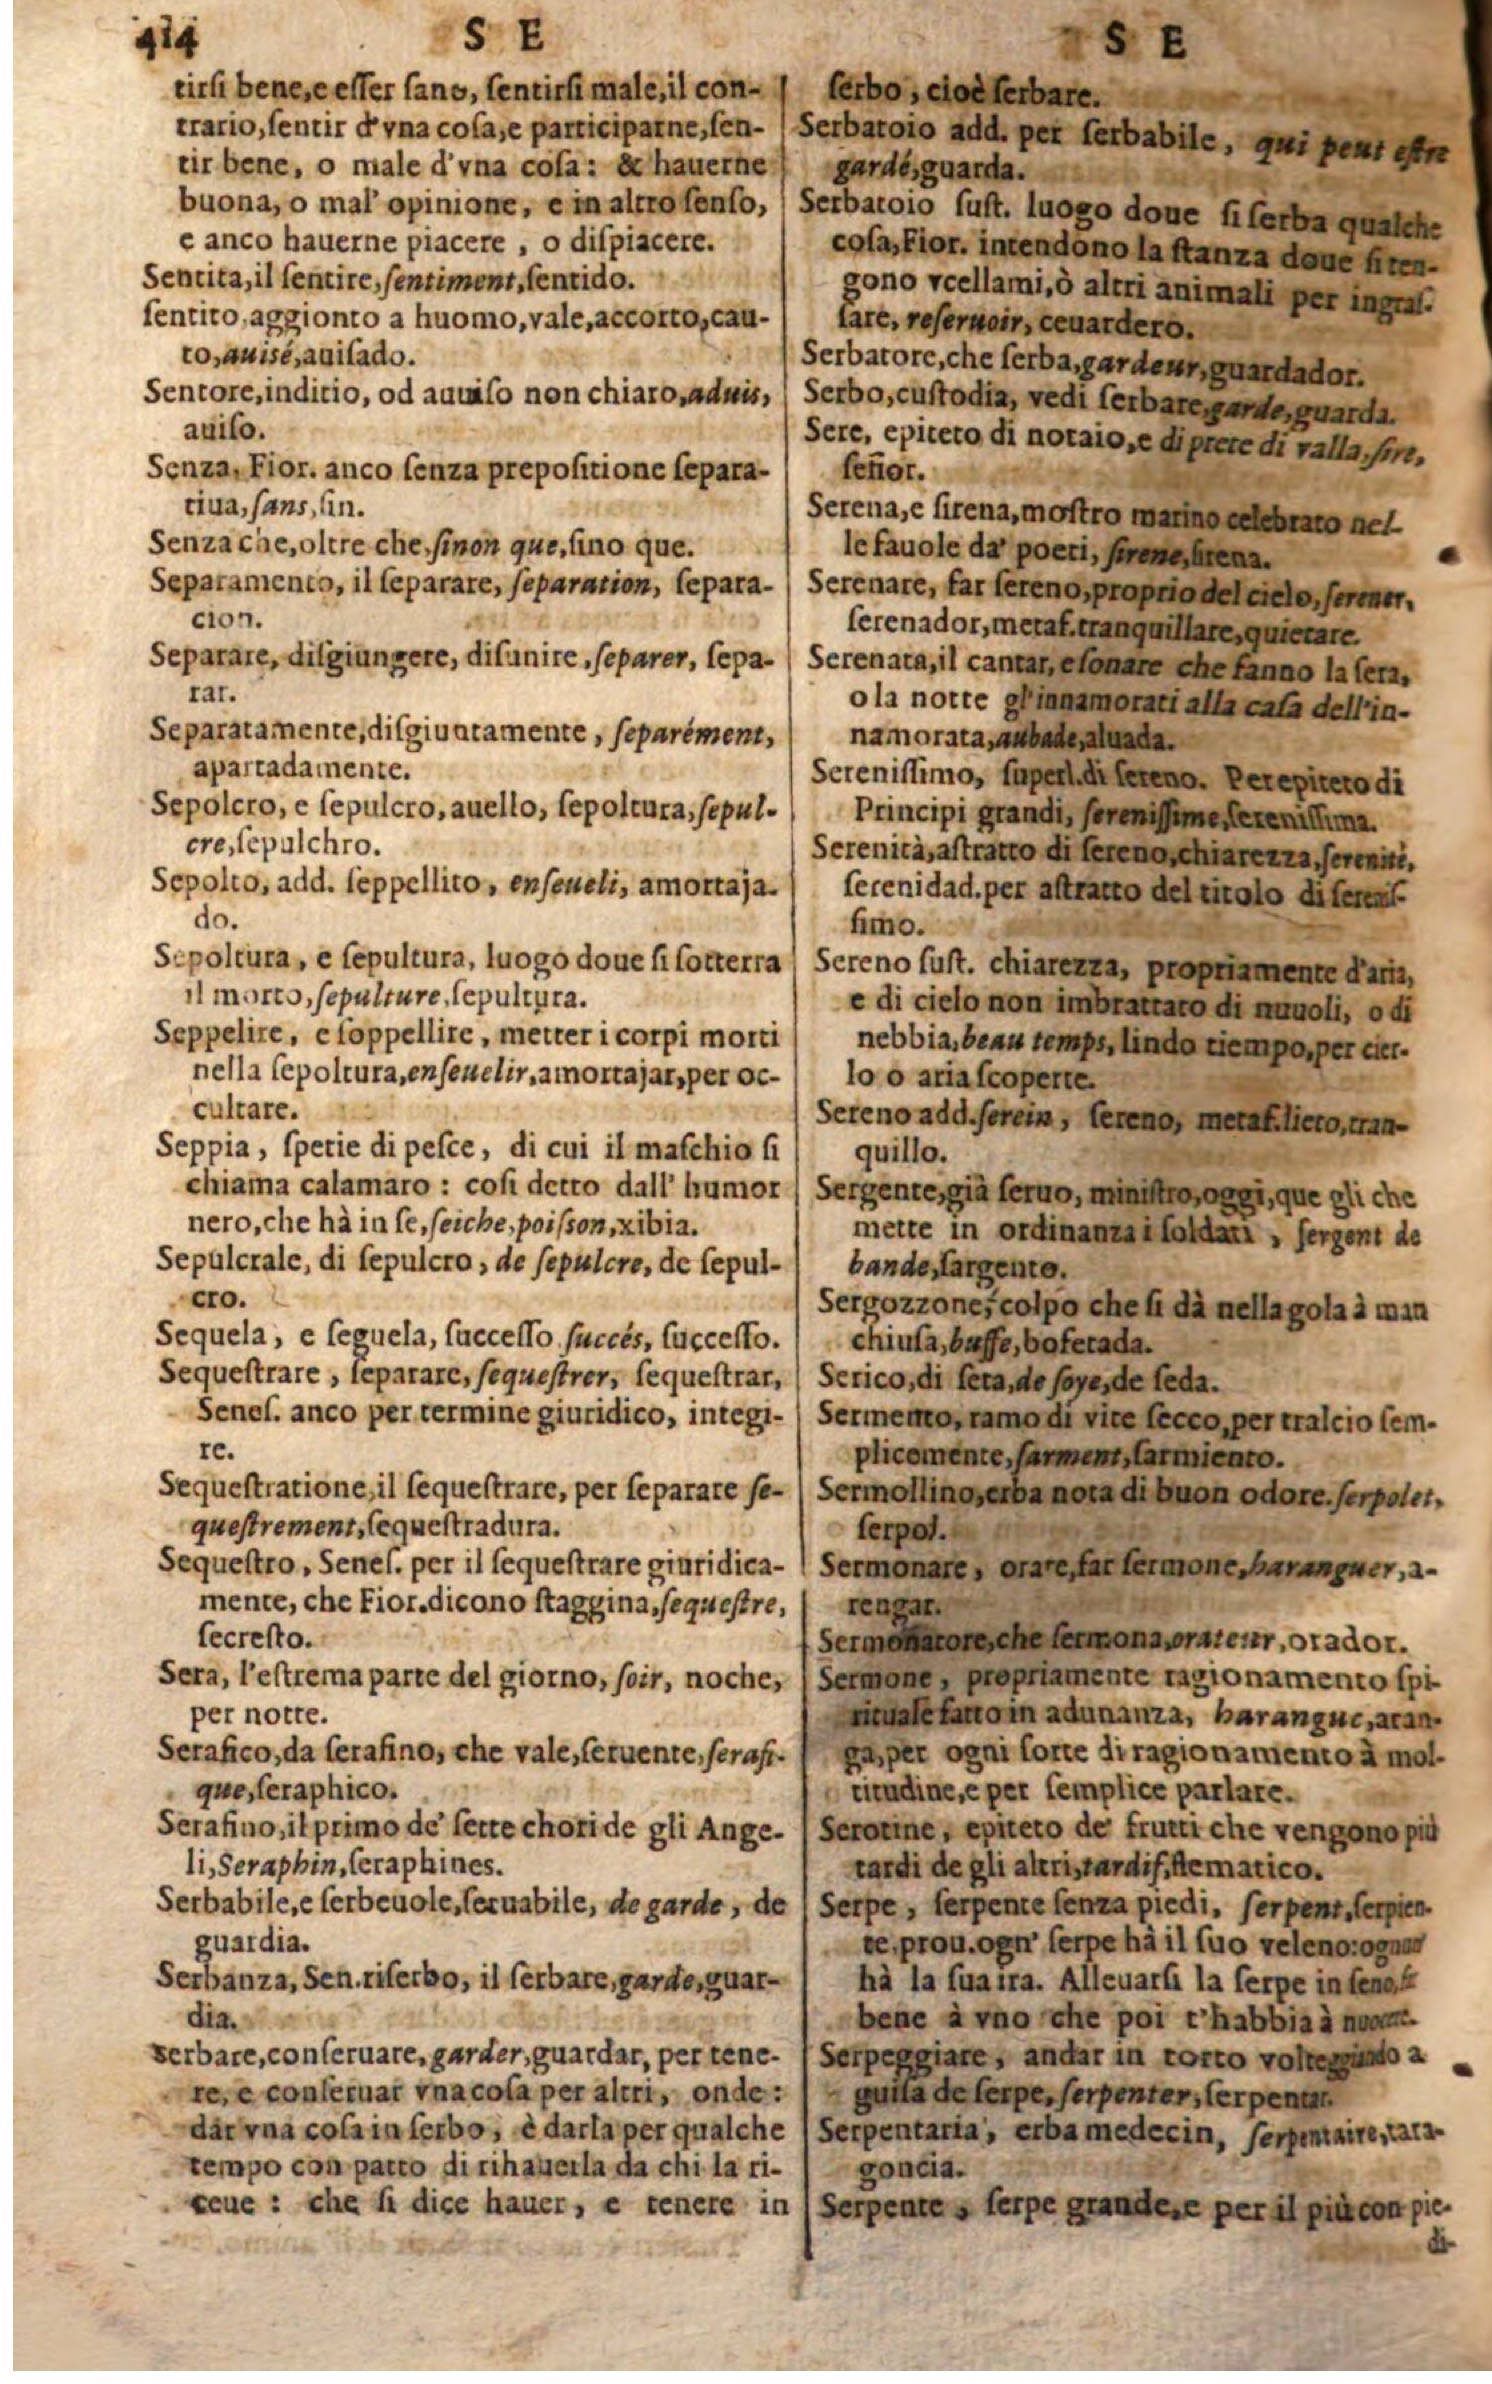 414 S E
tirſi bene,e eſſer ſano, ſentirſi male,il con-
trario,ſentir d'vna coſa,e participarne,ſen-
tir bene, o male d'vna coſa: & hauerne
buona, o mal' opinione, e in altro ſenſo,
e anco hauerne piacere , o diſpiacere.
Sentita,il ſentire,ſentiment,ſentido.
ſentito,aggionto a huomo,vale,accorto,cau-
to,auisé,auiſado.
Sentore,inditio, od auuiſo non chiaro,aduis,
auiſo.
Senza, Fior. anco ſenza prepoſitione ſepara-
tiua,ſans,ſin.
Senza che,oltre che,ſinon que,ſino que.
Separamento, il ſeparare, ſeparation, ſepara-
cion.
Separare, diſgiungere, diſunire,ſeparer, ſepa-
rar.
Separatamente,diſgiuntamente , ſeparément,
apartadamente.
Sepolcro, e ſepulcro,auello, ſepoltura,ſepul-
cre,ſepulchro.
Sepolto, add. ſeppellito , enſeueli, amortaja-
do.
Sepoltura , e ſepultura, luogo doue ſi ſotterra
il morto,ſepulture,ſepultura.
Seppelire, e ſoppellire , metter i corpi morti
nella ſepoltura,enſeuelir,amortajar,per oc-
cultare.
Seppia , ſpetie di peſce, di cui il maſchio ſi
chiama calamaro : coſi detto dall' humor
nero,che hà in ſe,ſeiche,poiſſon,xibia.
Sepulcrale, di ſepulcro , de ſepulcre, de ſepul-
cro.
Sequela, e ſeguela, ſucceſſo ſuccés, ſucceſſo.
Sequeſtrare , ſeparare, ſequeſtrer, ſequeſtrar,
Seneſ. anco per termine giuridico, integi-
re.
Sequeſtratione,il ſequeſtrare, per ſeparare ſe-
queſtrement,ſequeſtradura.
Sequeſtro , Seneſ. per il ſequeſtrare giuridica-
mente, che Fior.dicono ſtaggina,ſequeſtre,
ſecreſto.
Sera, l'eſtrema parte del giorno, ſoir, noche,
per notte.
Serafico,da ſerafino, che vale,feruente,ſerafi-
que,ſeraphico.
Serafino,il primo de' ſette chori de gli Ange-
li,Seraphin,ſeraphines.
Serbabile,e ſerbeuole,ſeruabile, de garde , de
guardia.
Serbanza, Sen.riſerbo, il ſerbare,garde,guar-
dia.
serbare,conſeruare,garder,guardar, per tene-
re, e conſeruar vna coſa per altri, onde :
dar vna coſa in ſerbo, è darla per qualche
tempo con patto di rihauerla da chi la ri-
ceue : che ſi dice hauer, e tenere in
S E
ſerbo , cioè ſerbare.
Serbatoio add. per ſerbabile, qui peut eſtre
gardé,guarda.
Serbatoio ſuſt. luogo doue ſi ſerba qualche
coſa,Fior. intendono la ſtanza doue ſi ten-
gono vcellami,ò altri animali per ingraſ-
ſare, reſeruoir, ceuardero.
Serbatore,che ſerba,gardeur,guardador.
Serbo,cuſtodia, vedi ſerbare,garde,guarda.
Sere, epiteto di notaio,e di prete di valla,ſire,
ſeñor.
Serena,e ſirena,moſtro marino celebrato nel-
le fauole da' poeti, ſirene,ſirena.
Serenare, far ſereno,proprio del cielo,ſerener,
ſerenador,metaf.tranquillare,quietare.
Serenata,il cantar,e ſonare che fanno la ſera,
o la notte gl'innamorati alla caſa dell'in-
namorata,aubade,aluada.
Sereniſſimo, ſuperl.di ſereno. Per epiteto di
Principi grandi, ſereniſſime,ſereniſſima.
Serenità,aſtratto di ſereno,chiarezza,ſerenité,
ſerenidad.per aſtratto del titolo di ſereniſ-
ſimo.
Sereno ſuſt. chiarezza, propriamente d'aria,
e di cielo non imbrattato di nuuoli, o di
nebbia,beau temps, lindo tiempo,per cier-
lo o aria ſcoperte.
Sereno add.ſerein , ſereno, metaf.lieto,tran-
quillo.
Sergente,già ſeruo, miniſtro,oggi,que gli che
mette in ordinanza i ſoldati , ſergent de
bande,ſargento.
Sergozzone, colpo che ſi dà nella gola à man
chiuſa,buffe,bofetada.
Serico,di ſeta,de ſoye,de ſeda.
Sermento, ramo di vite ſecco,per tralcio ſem-
plicemente,ſarment,ſarmiento.
Sermollino,erba nota di buon odore.ſerpolet,
ſerpol.
Sermonare , orare,far ſermone,haranguer,a-
rengar.
Sermonatore,che ſermona,orateur,orador.
Sermone , propriamente ragionamento ſpi-
rituale fatto in adunanza, harangue,aran-
ga,per ogni ſorte di ragionamento à mol-
titudine,e per ſemplice parlare.
Serotine, epiteto de' frutti che vengono più
tardi de gli altri,tardif,ſtematico.
Serpe , ſerpente ſenza piedi, ſerpent,ſerpien-
te,prou.ogn' ſerpe hà il ſuo veleno:ognun
hà la ſua ira. Alleuarſi la ſerpe in ſeno,
bene à vno che poi t'habbia à
Serpeggiare, andar in torto volteggiando a
guiſa de ſerpe,ſerpenter,ſerpentar.
Serpentaria, erba medecin, ſerpentaire,tara-
goncia.
Serpente , ſerpe grande,e per il più con pie-
di-